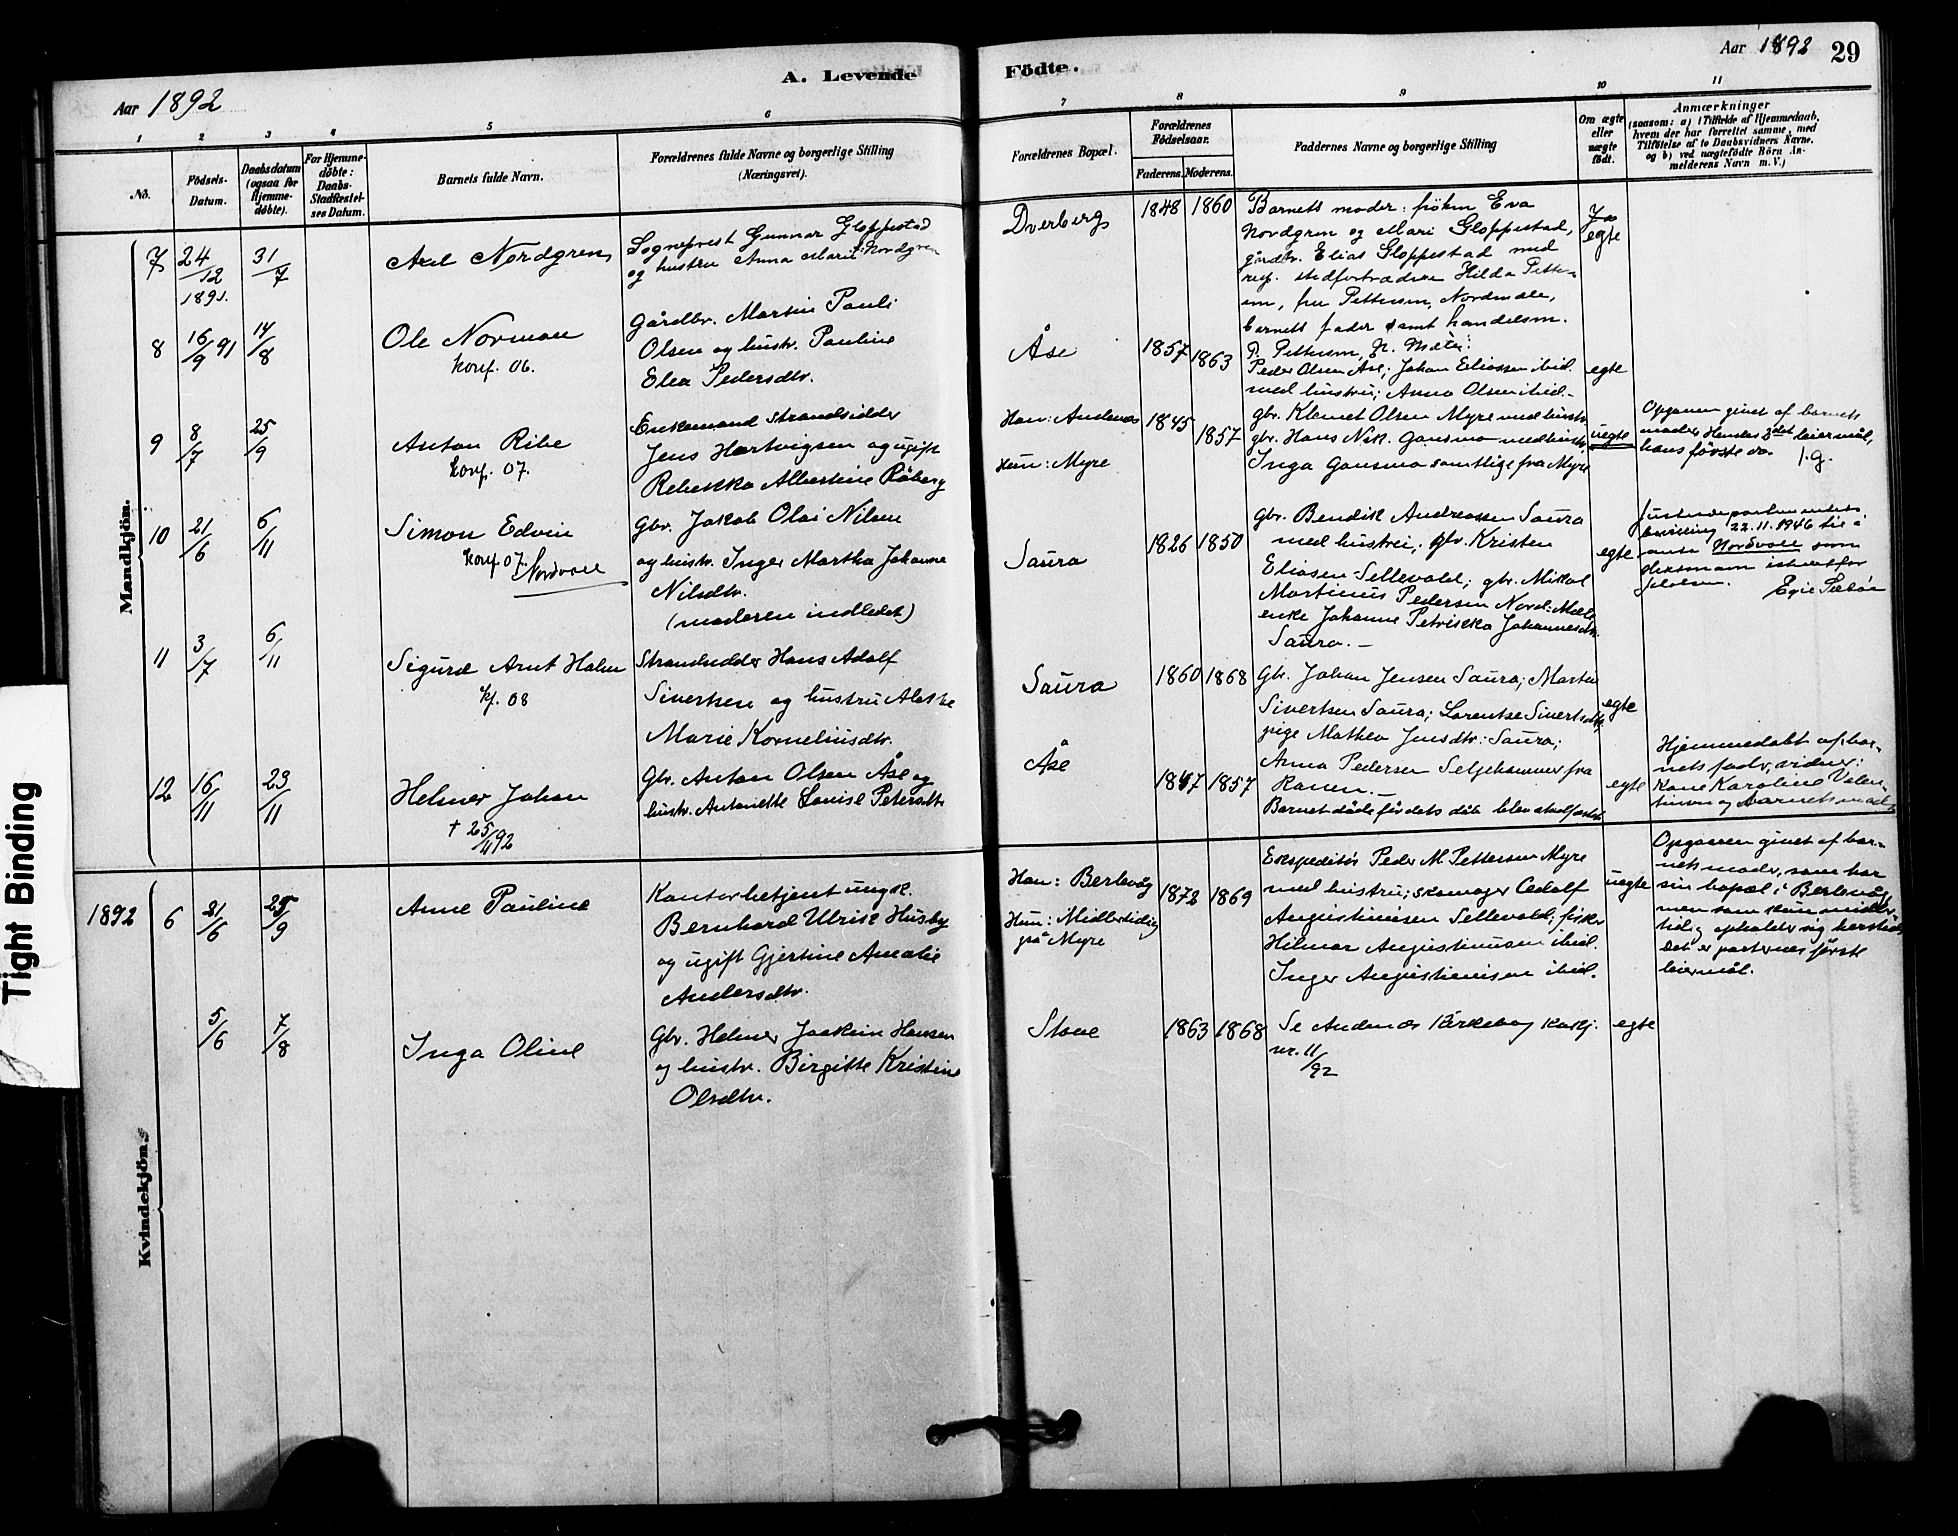 Aar 1892
A. Levende Födte.
Aar 1892 29
1 2 3 4 5 6 7 8 9 10 11
Nö.
Födsels-Datum.
Daabsdatum (ogsaa for Hjemme-döbte).
For Hjemme-döbte: Daabs-Stadfæstel-ses Datum.
Barnets fulde Navn.
Forældrenes fulde Navne og borgerlige Stilling
(Næringsvei).
Forældrenes Bopæl.
Forældrenes Födselsaar.
Faderens. Moderens.
Faddernes Navne og borgerlige Stilling
Om ægte eller uægte födt.
Anmærkninger
(saasom: a) i Tilfælde af Hjemmedaab,
hvem der har forrettet samme, med
Tilföielse af to Daabsvidners Navne,
og b) ved uægtefödte Börn An-
melderens Navn m. V.)
Mandkjön.
7 24/12 1891. 31/7
Axel Nordgren
Sogneprest Gunnar Gloppestad
og hustru Anna Marie f. Nordgren
Dverberg
1848 1860
Barnets moder: frøken Eva
Nordgren og Mari Gloppestad,
gårdbr. Elias Gloppestad med
resp. stedfortrædere Hilda Petter-
sen, fru Pettersen, Nordmæle,
barnets fader samt handelsm.
P. Pettersen, N. Mæle.
egte
8 16/9 91 14/8
Ole Norman
konf. 06.
Gårdbr. Martin Pauli
Olsen og hustr. Pauline
Elea Pedersdtr.
Åse
1857 1863
Peder Olsen Åse; Johan Eliassen ibid.
med hustru; Anna Olsen ibid.
egte
9 8/7 25/9
Anton Ribe
konf. 07.
Enkemand strandsidder
Jens Hartvigsen og ugift
Rebekka Albertine Röberg
Han: Andenæs
Hun: Myre
1845 1857
gbr. Klemet Olsen Myre med hustr.
gbr. Hans Nik. Gansmo med hustr.
Inga Gansmo samtlige fra Myre
uegte
Opgaven givet af barnets
moder. Hendes 3det leiermål,
hans første do. I. g.
10 21/6 6/11
Simon Edvin
konf. 07. Nordvoll
Gbr. Jakob Olai Nilsen
og hustr. Inger Martha Johanne
Nilsdtr.
(moderen indledet)
Saura
1826 1850
gbr. Bendik Andreassen Saura
med hustru; gbr. Kristen
Eliasen Sellevold; gbr. Mikal
Martinus Pedersen Nord-Mæle
enke Johanne Petrikka Johannesdtr.
Saura. —
egte
Justisdepartementets
bevilling 22.11.1946 til å
anta Nordvoll som
slektsnavn
11 3/7 6/11
Sigurd Arnt Holm
kf. 08
Strandsidder Hans Adolf
Sivertsen og hustru Aletke
Marie Korneliusdtr.
Saura
1860 1868
Gbr. Johan Jensen Saura; Marten
Sivertsen Saura; Lorentse Sivertsdtr.
pige Mathea Jensdtr. Saura;
Anna Pedersen Seljehammer fra
Ranen. —
egte
12 16/11 23/11
Helmer Johan
† 25/11 92
Gbr. Anton Olsen Åse og
hustr. Antonette Louise Petersdtr.
Åse
1847 1857
Barnet døde før dets dåb blev stadfæstet
egte
Hjemmedøbt af bar-
nets fader, vidner:
kone Karoline Valen-
tinsen og barnets moder
Kvindekjön.
1892 6 21/6 25/9
Anne Pauline
Kontorbetjent ungk.
Bernhard Ulrik Husby
og ugift Gjertine Amalie
Andersdtr.
Han: Berlevåg
Hun: Midlertidig
på Myre
1872 1869
Ekspeditör Peder M. Pettersen Myre
med hustru; skomager Adolf
Augustinusen Sellevold; fisker
Hilmar Augustinusen ibid.
Inger Augustinusen ibid.
uegte
Opgaven givet af bar-
nets moder, som har
sin bopæl i Berlevåg
men som kun midler-
tidig opholder sig hersteds.
Det er parternes første
leiermål.
5/6 7/8
Inga Oline
Gbr. Helmer Joakim Hansen
og hustr. Birgitte Kristine
Olsdtr.
Stave
1863 1868
Se Andenæs kirkebog
nr. 11/92
egte
Tight Binding